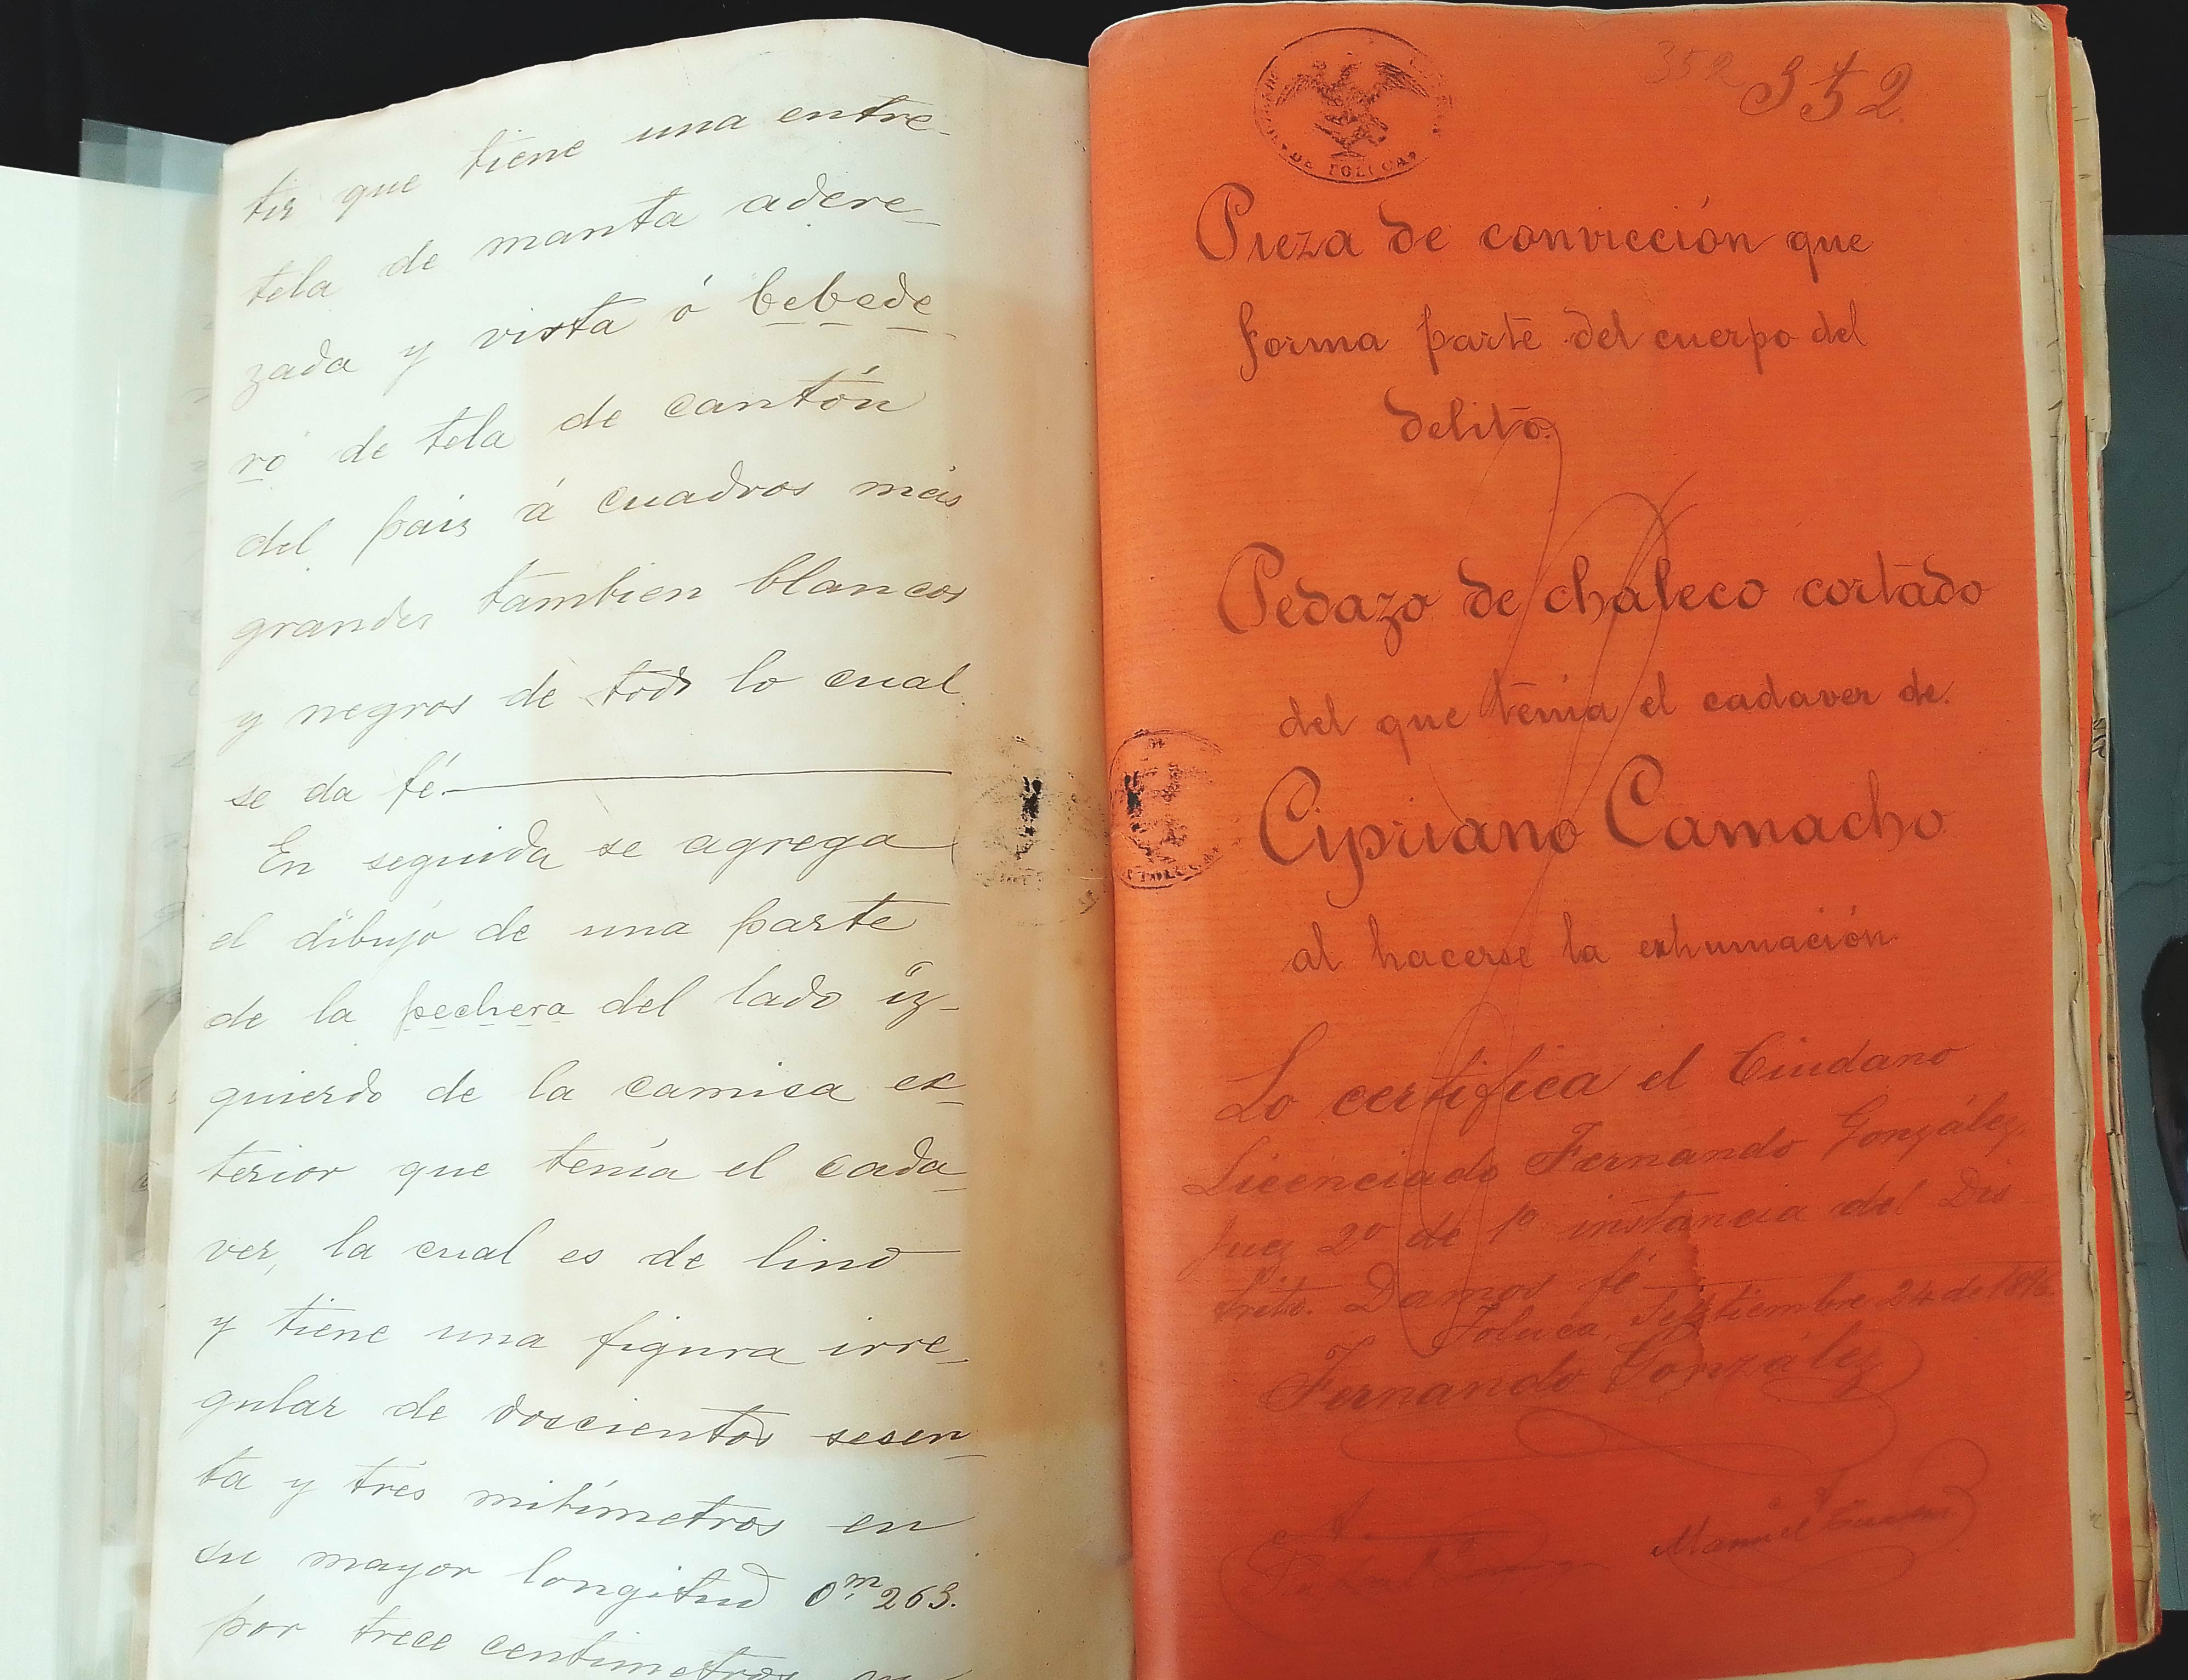 tir que tiene una entre-
tela de manta adere-
zada y vista ó bebede-
ro de tela de cantón
del pais á cuadros más
grandes tambien blancos
y negros de todo lo cual
se da fé.
En seguida se agrega
el dibujo de una parte
de la pechera del lado iz-
quierdo de la camisa ex-
terior que tenía el cada-
ver, la cual es de lino
y tiene una figura irre-
gular de doscientos sesen-
ta y tres milímetros en
su mayor longitud 0m. 263.
por trece centimetros
DE TOLUCA
352 352.
Pieza de convicción que
forma parte del cuerpo del
delito.
Pedazo de chaleco cortado
del que tenia el cadaver de
Cipriano Camacho
al hacerse la exhumación.
TOLUCA
Lo certifica el Ciudano
Licenciado Fernando González,
Juez 2º de 1ª instancia del Dis-
trito. Damos fé
Toluca, Septiembre 24 de
Fernando González
Manuel